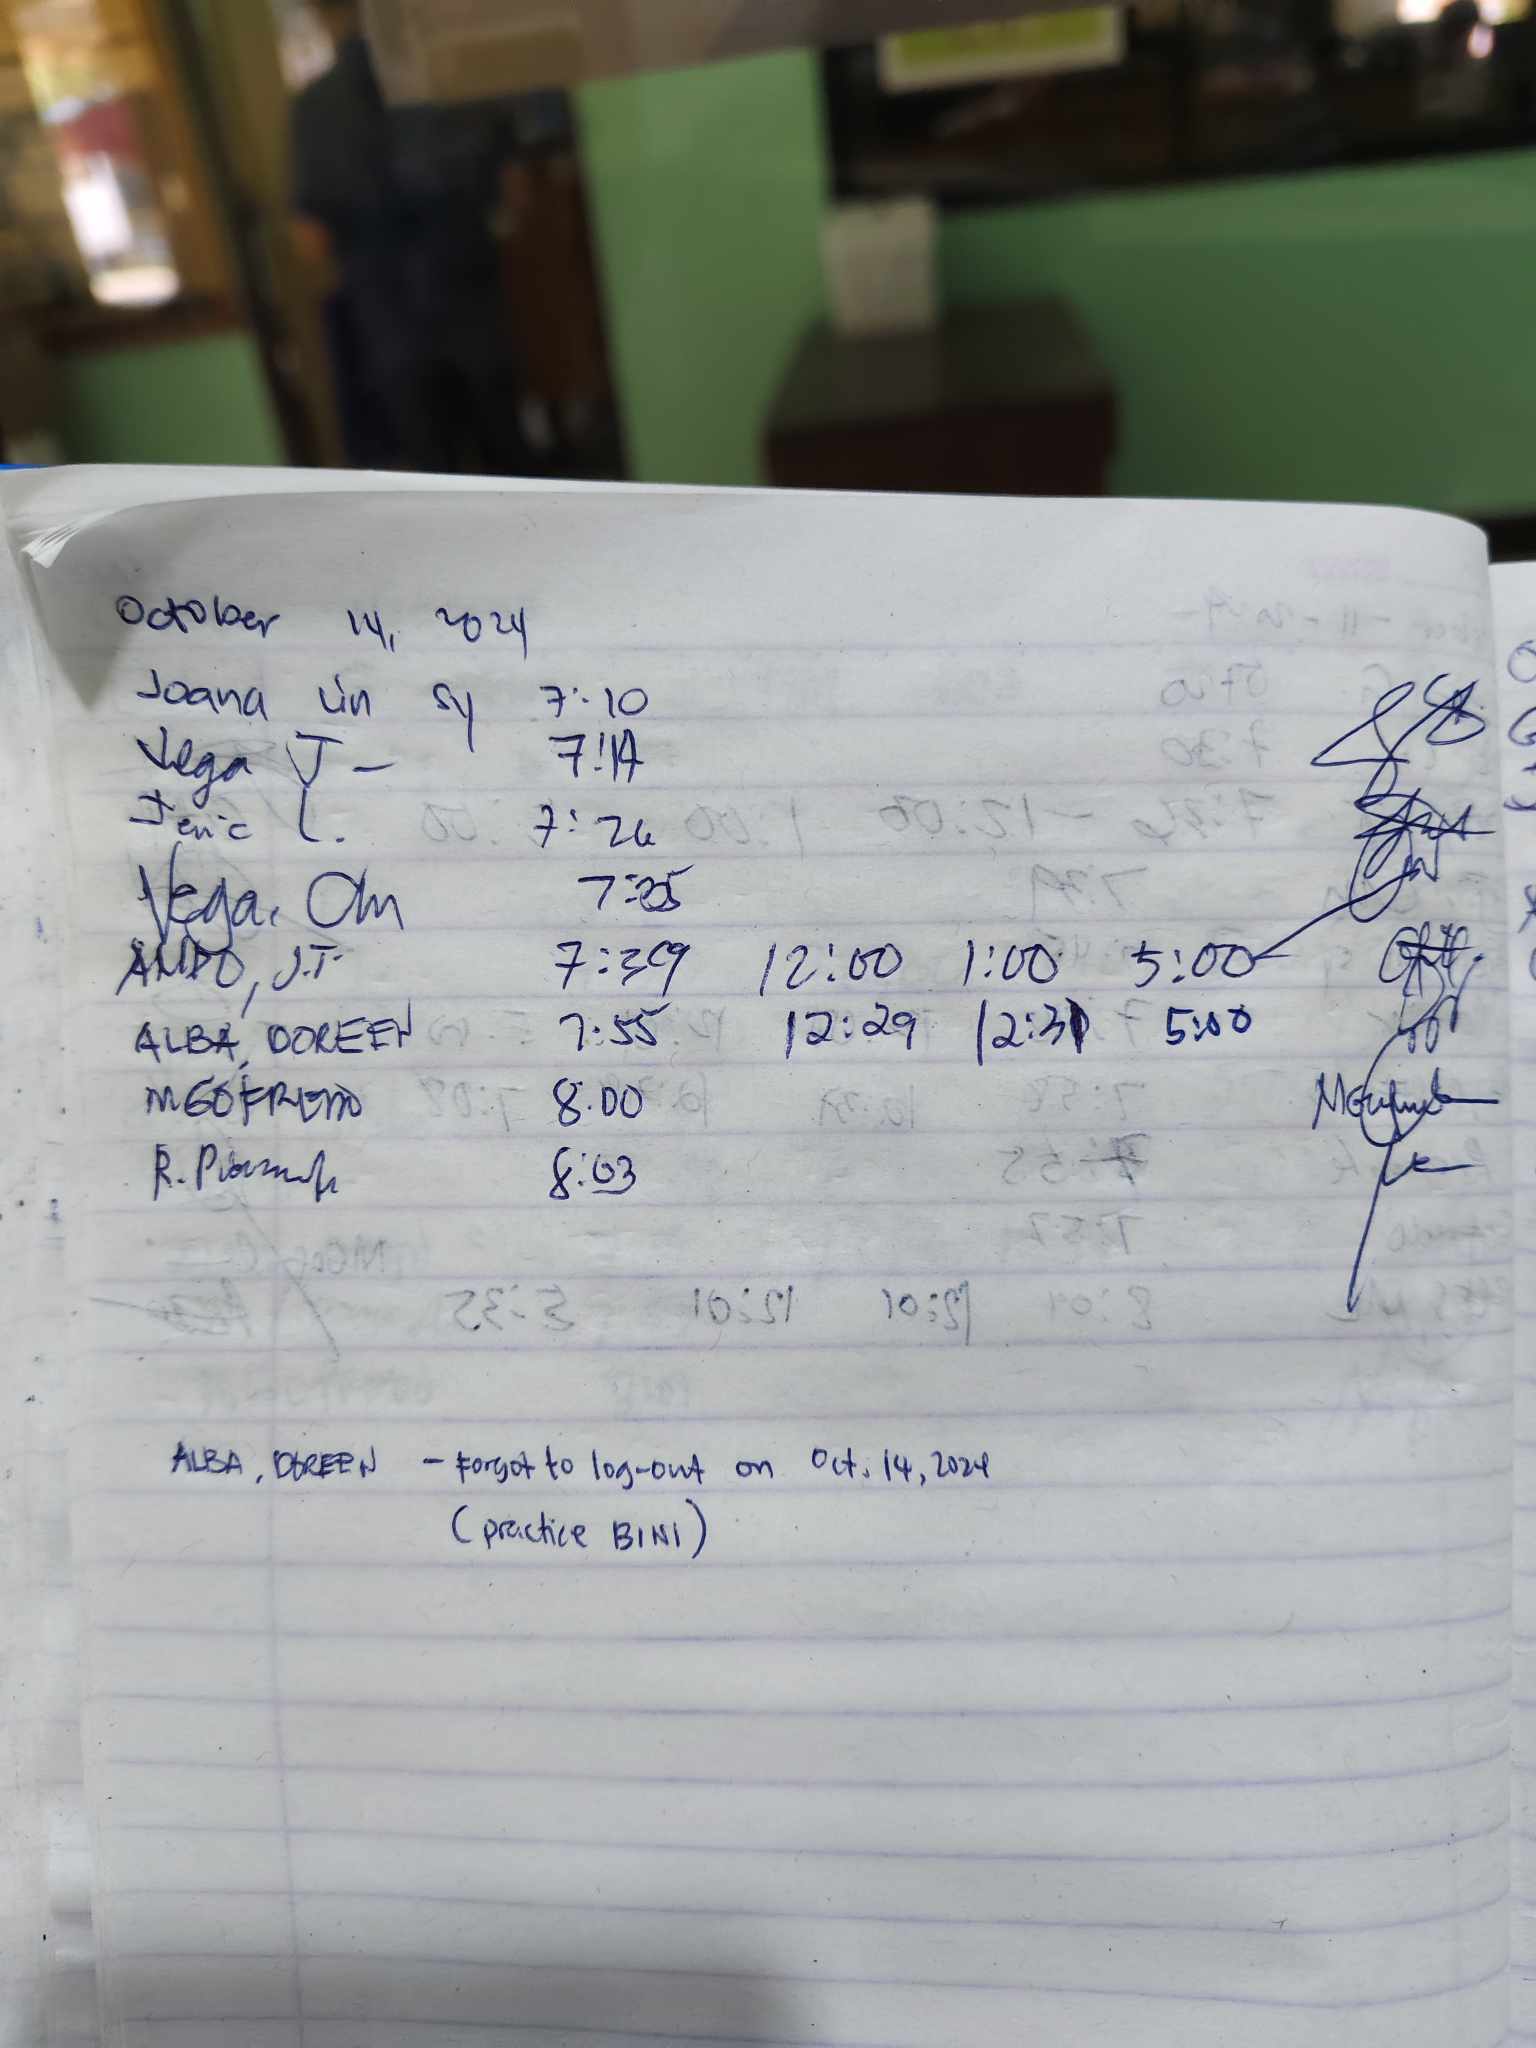 October 14, 2024
Joana Lin Sy 7:10
Vega J - 7:14
Jeric L. 7:26
Vega, 7:35
AMDO, J.T. 7:39 12:00 1:00 5:00
ALBA, DOREEN 7:55 12:29 12:31 5:00
MGOFREDO 8:00
R. 8:03
ALBA, DOREEN - Forgot to log-out on Oct. 14, 2024
(practice BINI)